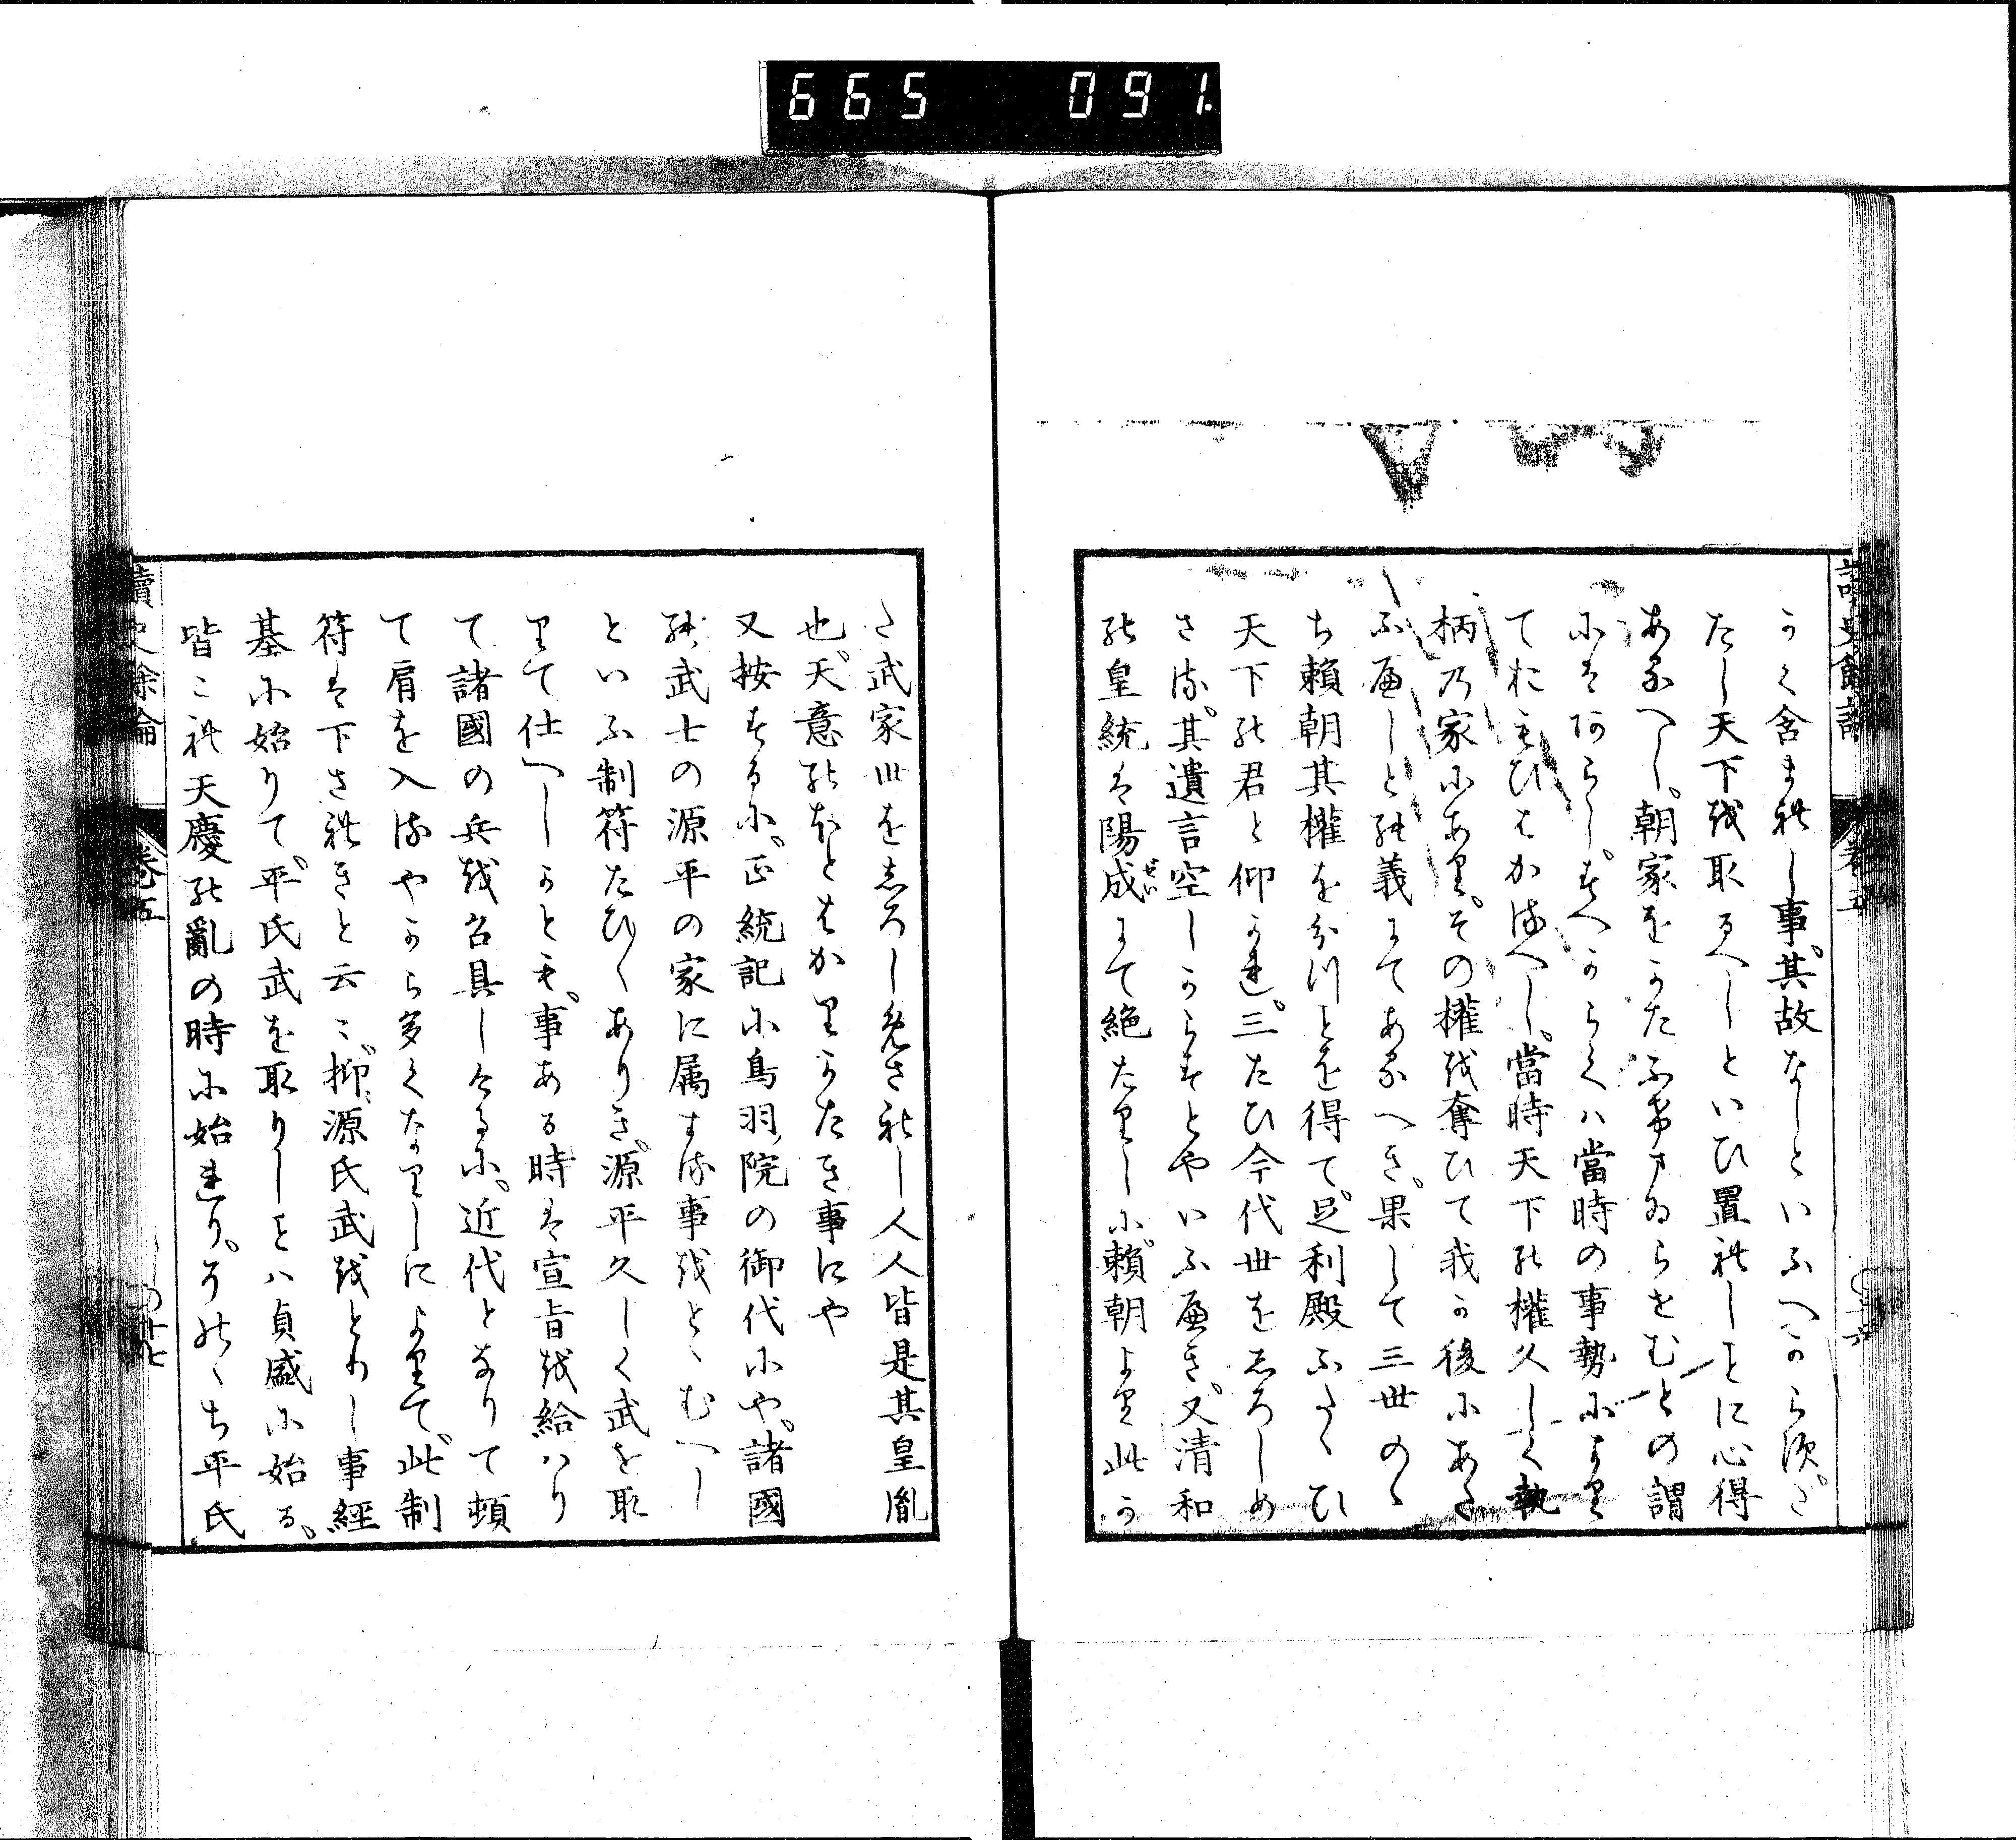 665 091
かく含まれし事。其故なしといふへからす。ざ
たし天下を取るへしといひ置れしをに心得
あるへし。朝家をかたふけまゐらせむとの謂
にはあらし。すへからくハ當時の事勢により
ておもひはかるへし。當時天下の權久しく執
柄乃家にあり。その權を奪ひて我か後にあた
ふへしとの義にてあるへき。果して三世のゝ
ち頼朝其權を分つとを得て。足利殿ふたゝひ
天下の君と仰かれ。三たひ今代世をしろしめ
さる。其遺言空しからすとやいふへき。又清和
の皇統は陽成にて絶たりしに。頼朝より此か
せい
讀史餘論 卷五 〇十六
た武家世をしろし免され し人人皆是其皇胤
也。天意のほとはかりかたき事にや
又按するに。正統記に鳥羽院の御代にや。諸國
の武士の源平の家に属する事をとゝむへし
といふ制符たひ〱ありき。源平久しく武を取
りて仕へしかとも。事ある時は宣旨を給ハり
て諸國の兵を召具しけるに。近代となりて頓
て肩を入るやから多くなりしによりて。此制
符は下されきと云々。抑源氏武をとりし事經
基に始りて。平氏武を取りしとハ貞盛に始る。
皆これ天慶の亂の時に始れり。そのゝち平氏
讀史餘論 卷五 〇十七